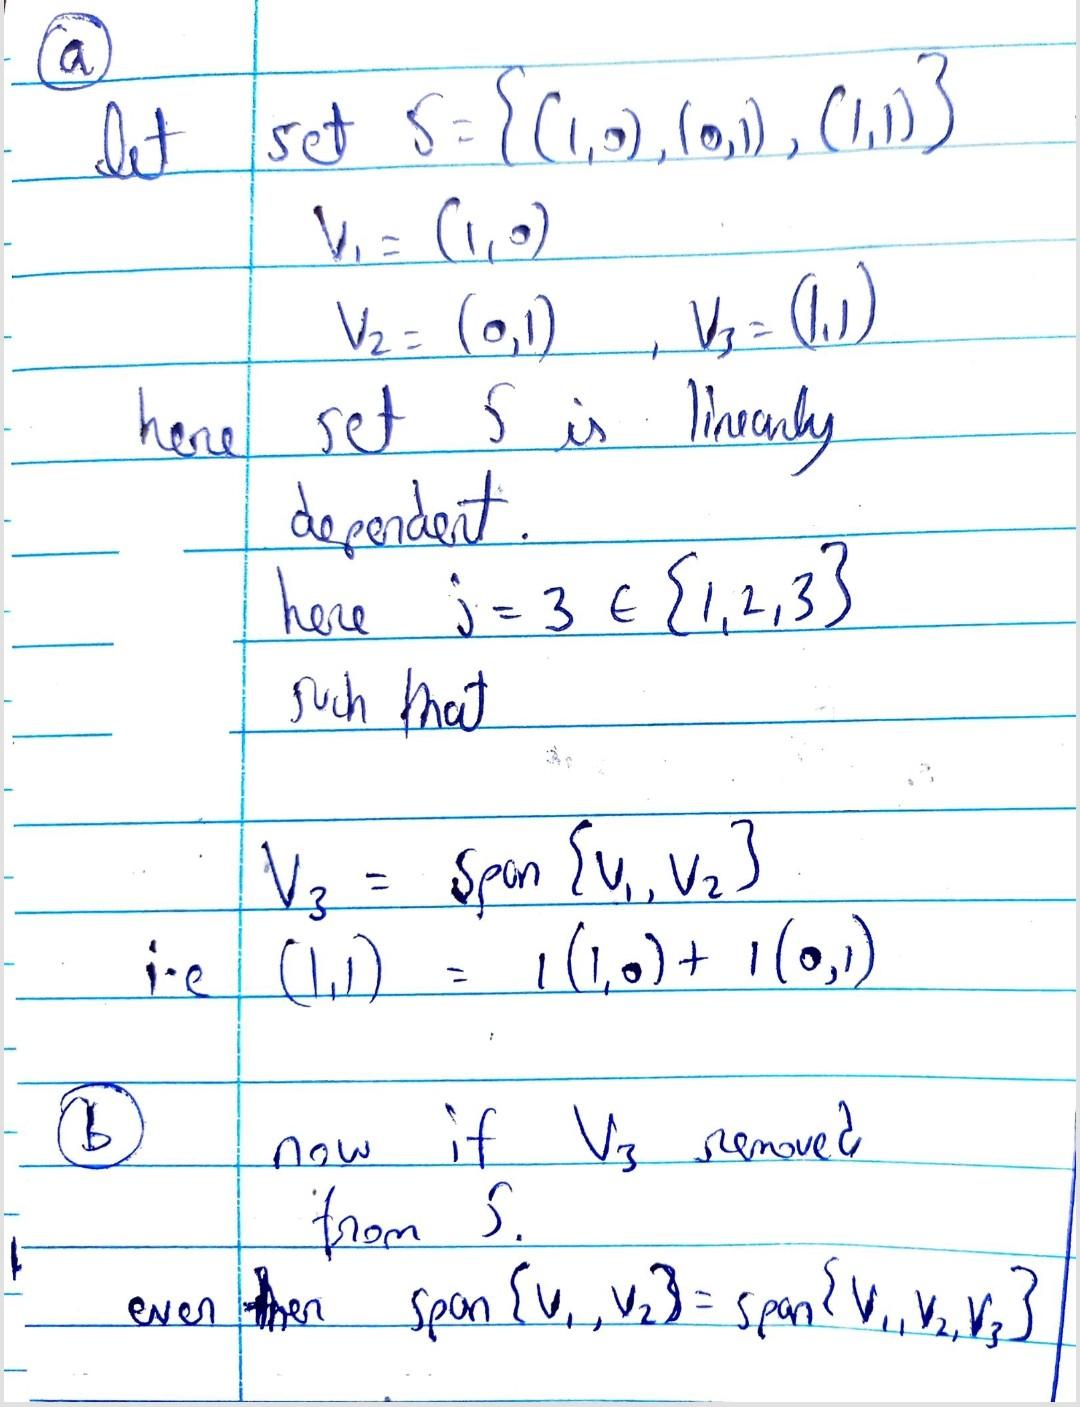 (a)
let set S = {(1,0), (0,1), (1,1)}
V₁ = (1,0)
V₂ = (0,1) , V₃ = (1,1)
here set S is linearly
dependent.
here j = 3 ∈ {1,2,3}
such that
V₃ = span {V₁, V₂}
i.e (1,1) = 1(1,0) + 1(0,1)
(b) now if V₃ removed
from S.
even then span {V₁, V₂} = span {V₁, V₂, V₃}